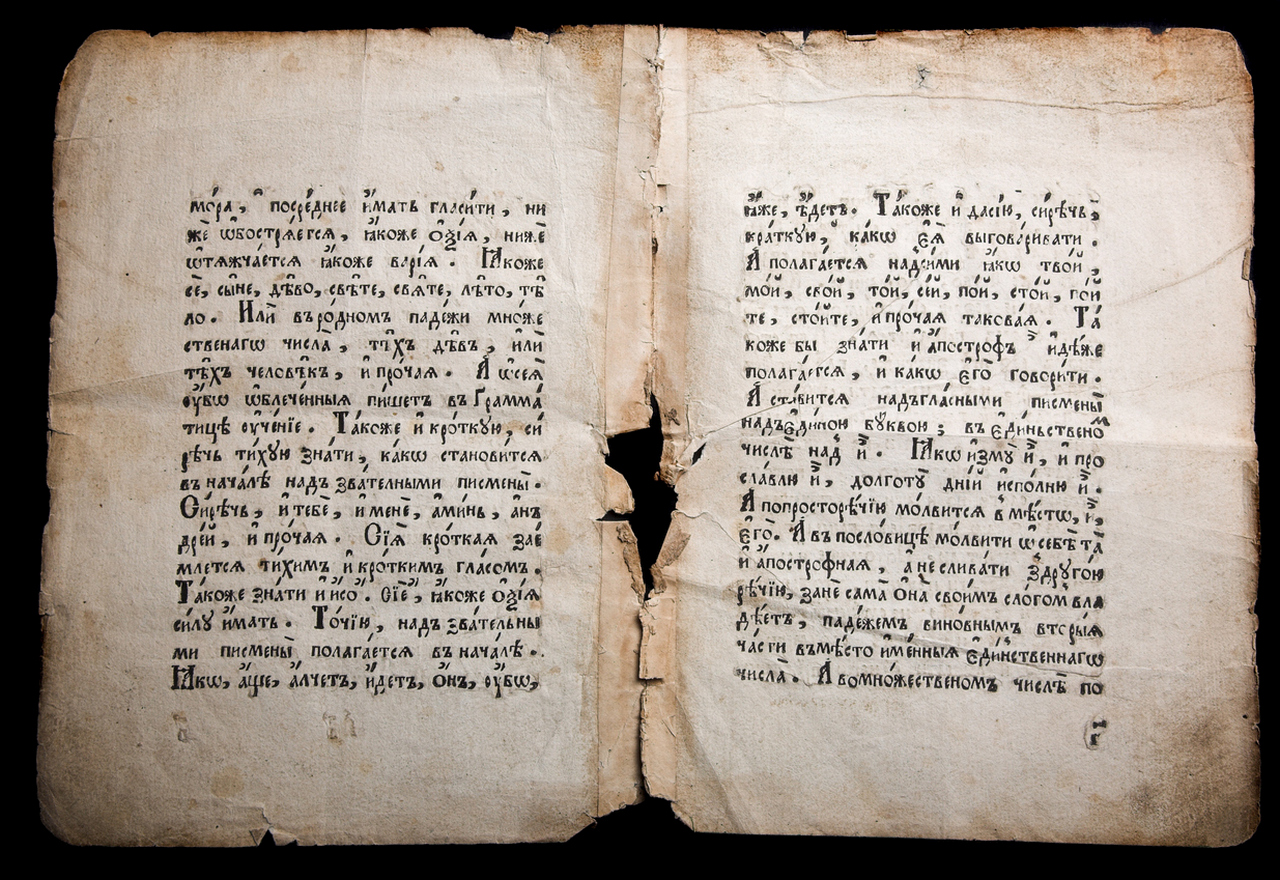 мо́ра , посре́днее и҆́мать гласи́ти , ни
же ѡ҆бострѧ́етсѧ , ꙗ҆́коже ѻ҆ѯі́ѧ , нижѐ
ѡ҆тѧжча́етсѧ ꙗ҆́коже варі́ѧ . Ꙗ҆́коже
се́ , сы́не , дѣ́во , свѣ́те , свѧ́те , лѣ́то , тѣ́
ло . И҆лѝ въ ро́дномъ падежи мно́же
ственагѡ числа̀ , тѣ́хъ дѣ́въ , и҆лѝ
тѣ́хъ человѣ́къ , и҆ про́чаѧ . А҆ ѡ҆ сеѧ̀
ᲂу҆́бѡ ѡ҆блече́нныѧ пи́шетъ въ Грамма́
тицѣ ᲂу҆че́нїе . Та́коже и҆ кро́ткую , си
рѣ́чь ти́хую зна́ти , ка́кѡ становитсѧ
въ нача́лѣ надъ зва́телными писмены̀ .
Си́рѣчь , и҆ тебѐ , и҆ менѐ , а҆ми́нь , а҆нъ
дре́й , и҆ про́чаѧ . Сїѧ̀ кро́ткаѧ зае́
млетсѧ ти́химъ и҆ кро́ткимъ гла́сомъ .
Та́коже зна́ти и҆ и҆со . Сїѐ , ꙗ҆́коже ѻ҆ѯі́ѧ
си́лꙋ и҆́мать . То́чїю , надъ зва́тельны
ми писмены̀ полага́етсѧ въ нача́лѣ .
Ꙗ҆́кѡ , а҆́ще , а҆́лчетъ , и҆́детъ , ѻ҆́нъ , ᲂу҆́бѡ ,
ꙗ҆́же , ѣ҆́детъ . Та́коже и҆ дасі́ю , си́рѣчь ,
кра́ткую , ка́кѡ є҆ѧ̀ выгова́ривати .
А҆ полага́етсѧ над си́ми ꙗ҆́кѡ тво́й ,
мо́й , сво́й , то́й , се́й , по́й , сто́й , по́й
те , сто́йте , и҆ про́чаѧ такова́ѧ . Та́
коже бы зна́ти и҆ а҆по́строфъ и҆дѣ́же
полага́етсѧ , и҆ ка́кѡ є҆го̀ говори́ти .
А҆ ста́витсѧ надъ гла́сными писмены̀
надъ є҆ди́ною бꙋ́квою ; въ є҆ди́ньственом
числѣ̀ над и҆̀ . Ꙗ҆́кѡ и҆змꙋ̀ и҆̀ , и҆ про
сла́влю и҆̀ , долготꙋ̀ дні́й и҆спо́лню и҆̀ .
А҆ по просторѣ́чїю мо́лвитсѧ в мѣ́стѡ , и҆̀ ,
є҆го̀ . А҆ въ посло́вицѣ мо́лвити ѡ҆ себѣ̀ та
и҆ а҆по́строфнаѧ , а҆ не слива́ти з дрꙋго́ю
рѣ́чїю , занѐ сама̀ ѻ҆на̀ свои́мъ сло́гомъ вла
дѣ́етъ , паде́жемъ вино́внымъ вторы́ѧ
ча́сти въмѣ́сто и҆ме́нныѧ є҆ди́нственнагѡ
числа̀ . А҆ во мно́жественомъ числѣ̀ по